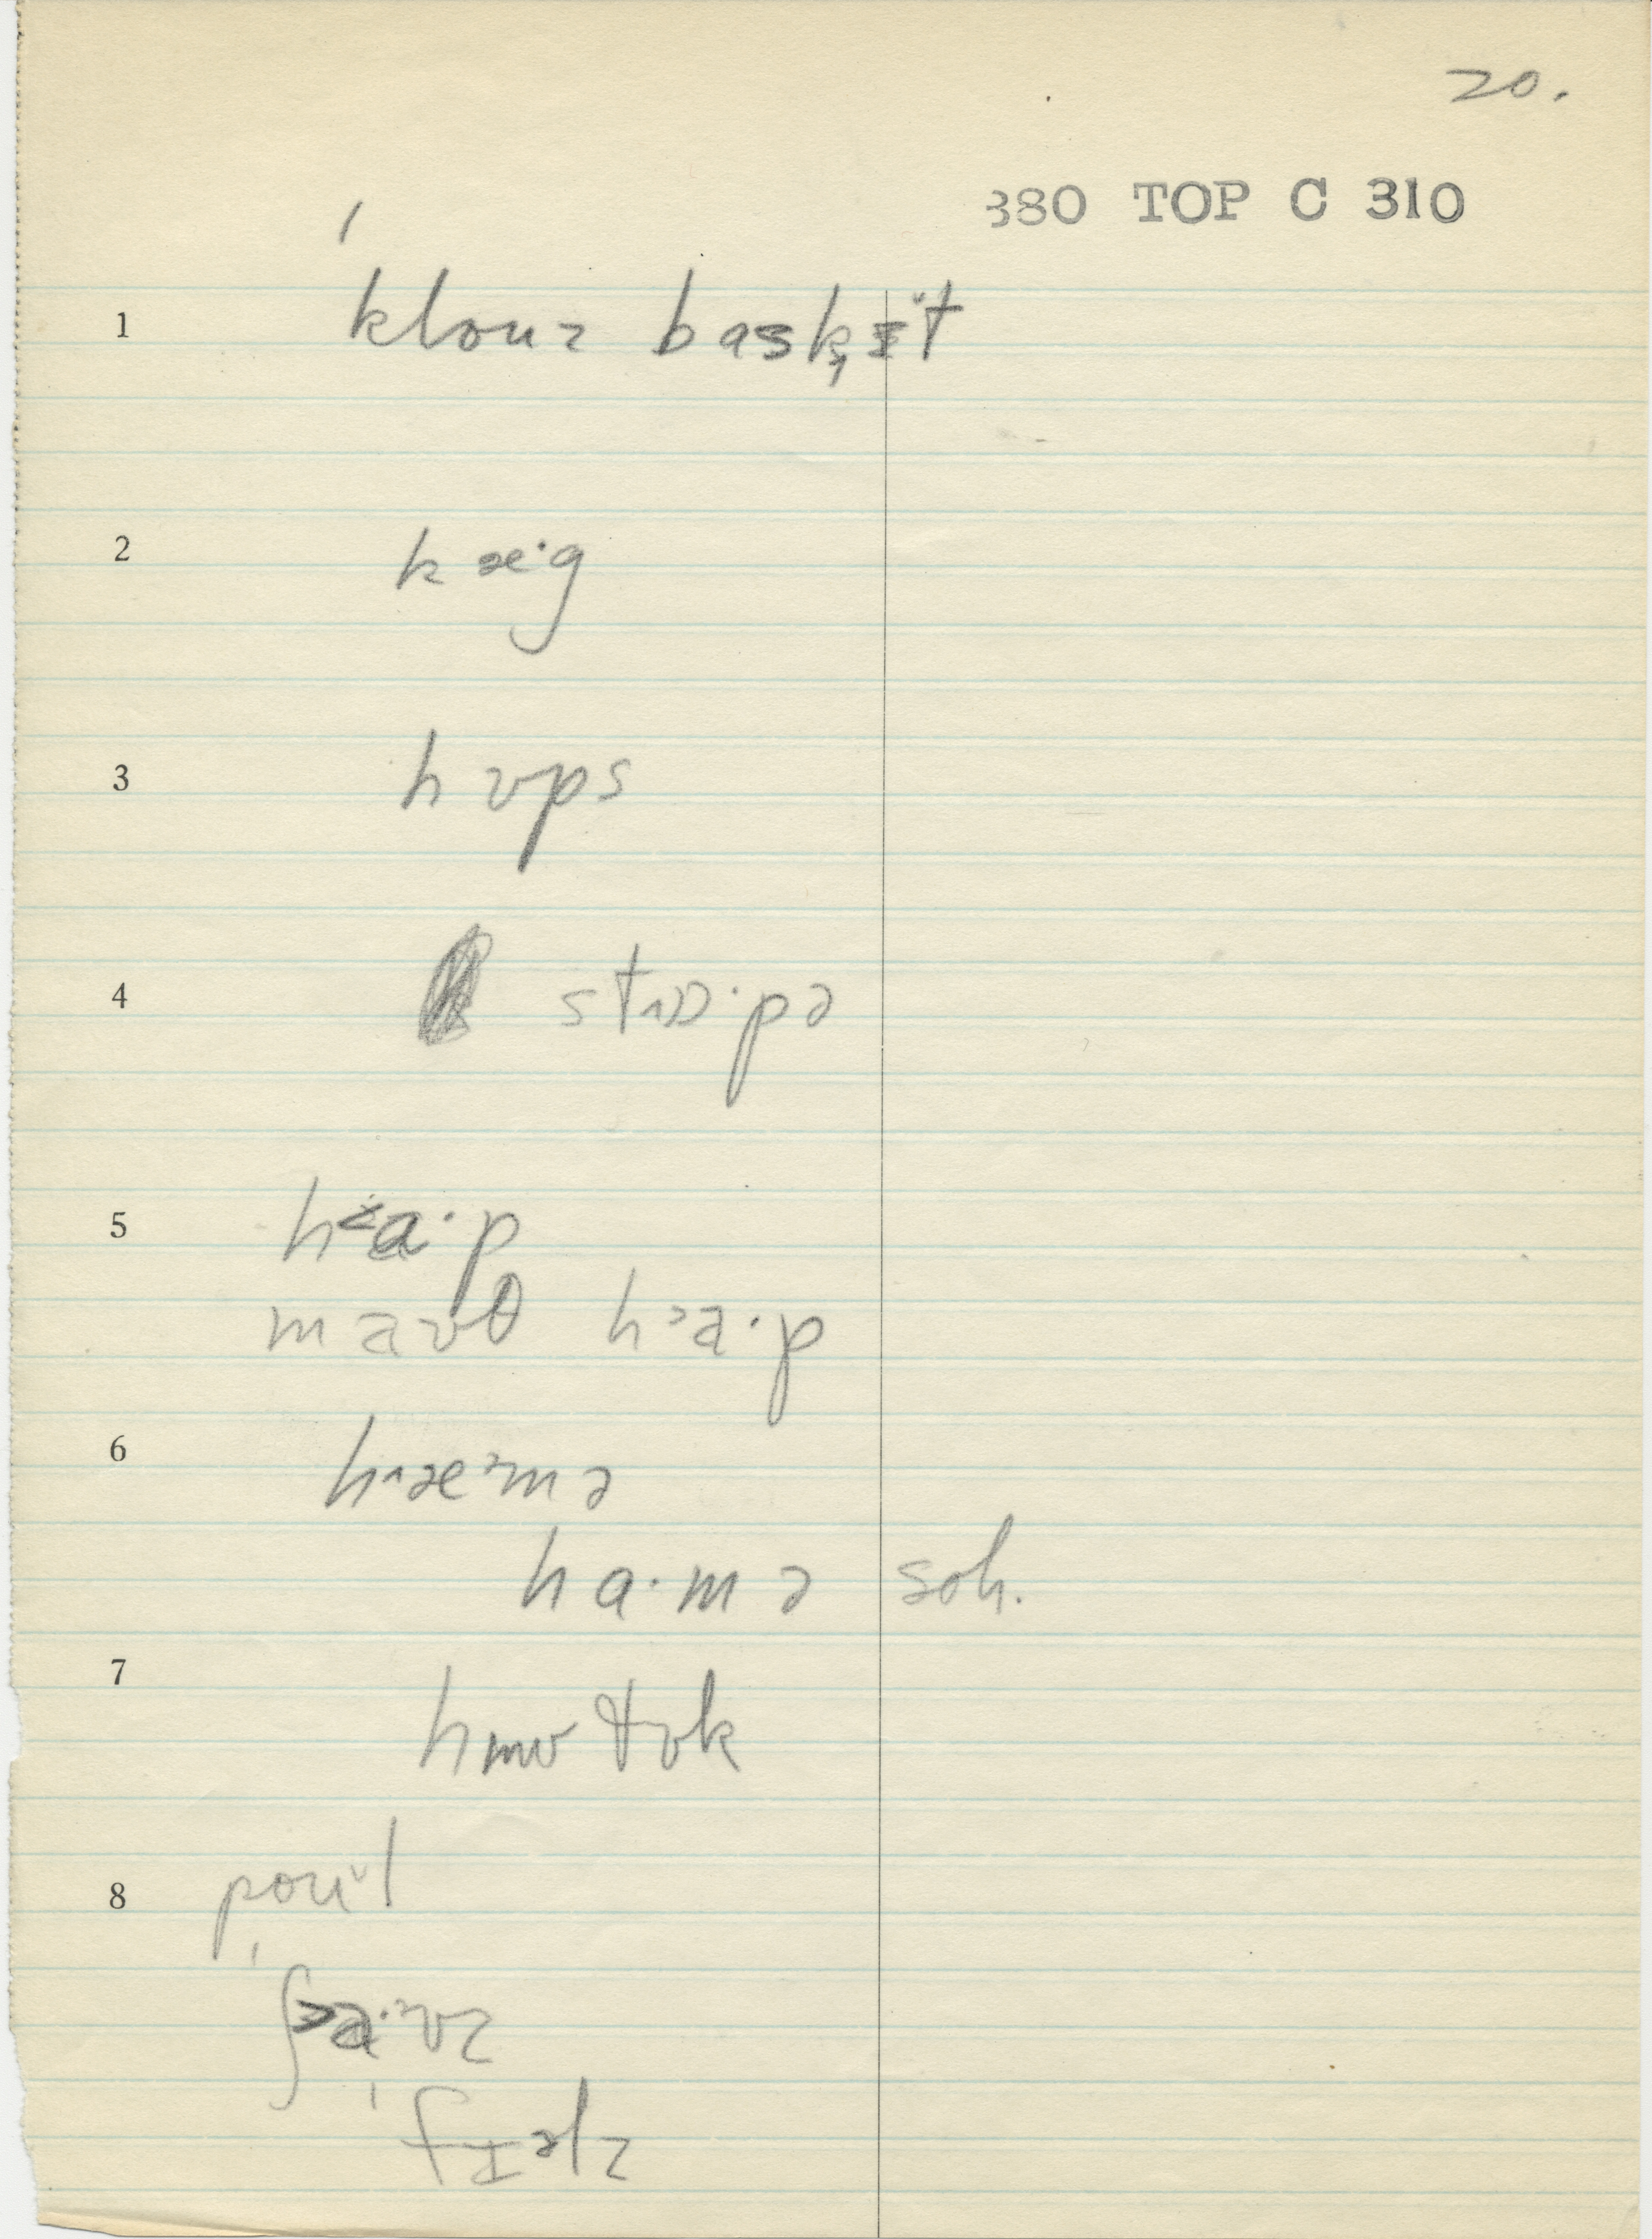 20.
380 TOP C 310
1 klouz baskɪ̆t
2 kæ·g
3 hɒps
4 strɒ·pə
5 h˂a·p
maʊθ h˃a·p
6 hæ˃mə
ha·mə soh.
7
8 poʊĭl
ʃ˃a·ʊz
fɪəlz